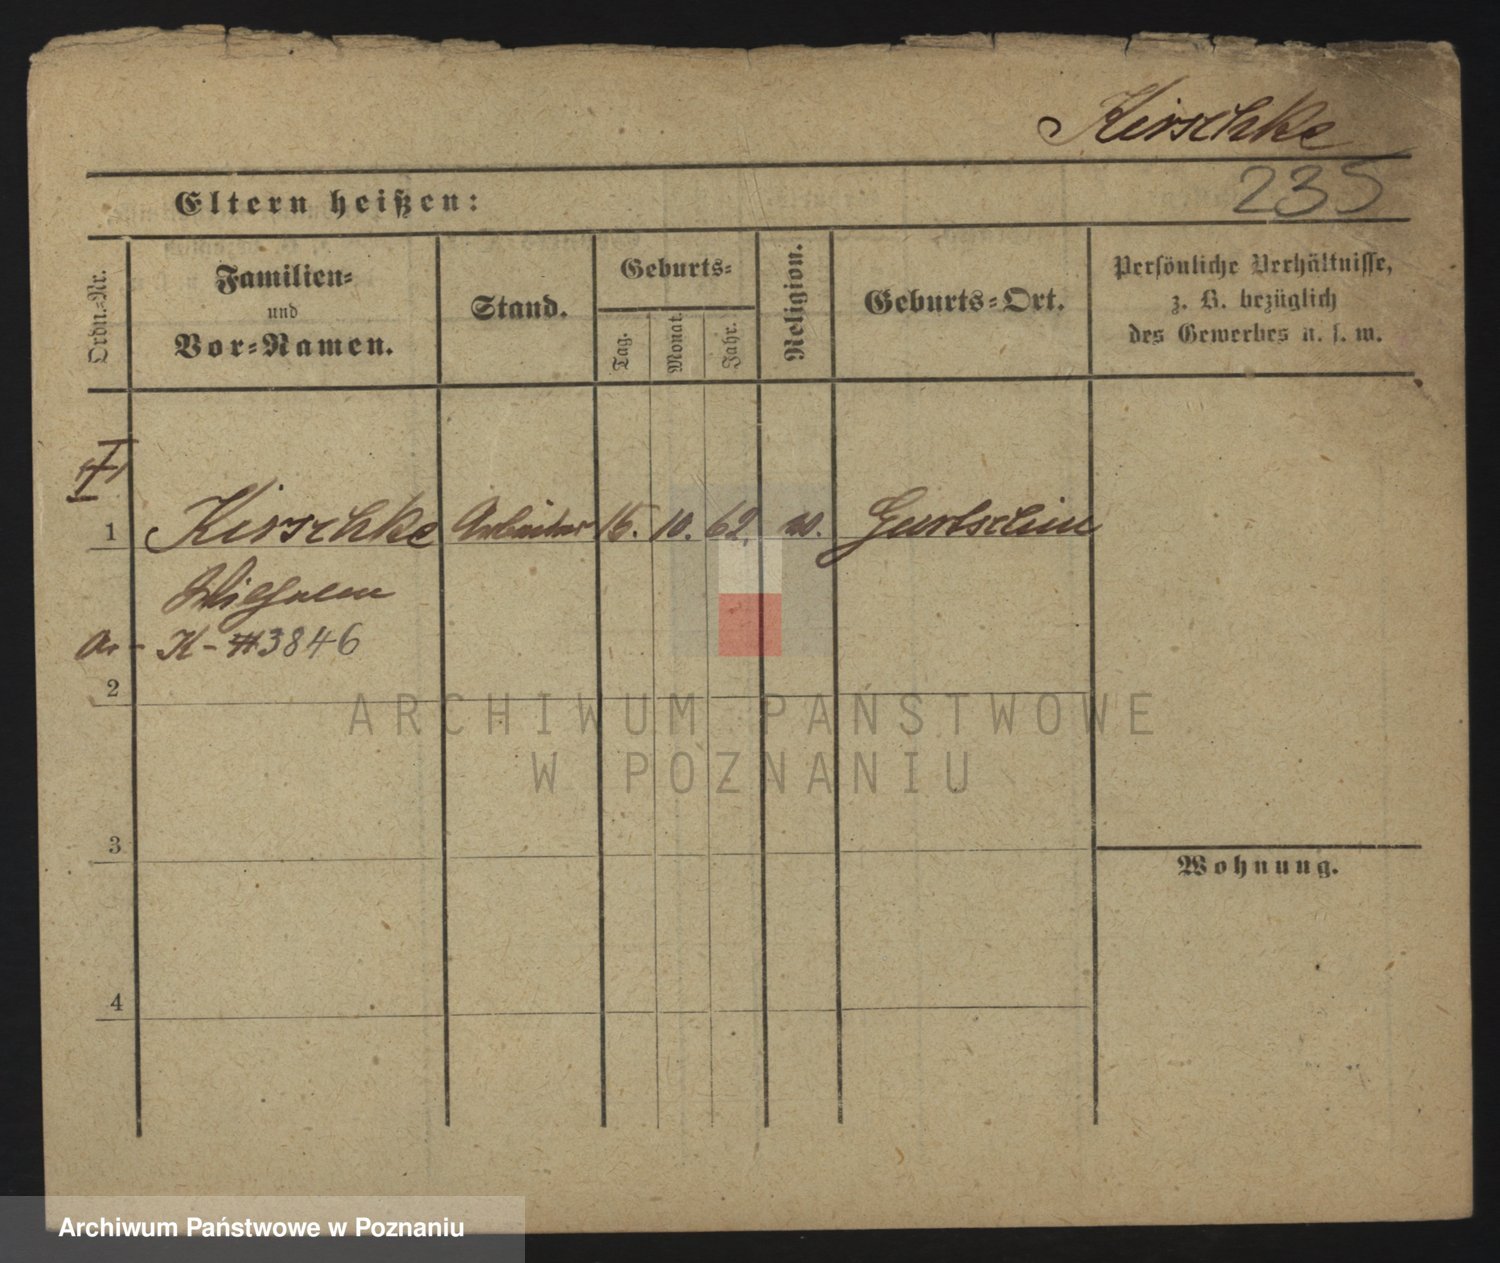 Kirschke
235
Eltern heißen:
Ordn.-Nr.
Familien-
und
Vor-Namen.
Stand.
Geburts-
Tag.
Monat.
Jahr.
Religion.
Geburts-Ort.
Persönliche Verhältnisse,
z. B. bezüglich
des Gewerbes u. s. w.
1 Kirschke Arbeiter 10. 62.
Wilhelm
K- #3846
2
3
4
Wohnung.
ARCHIWUM PAŃSTWOWE
W POZNANIU
Archiwum Państwowe w Poznaniu